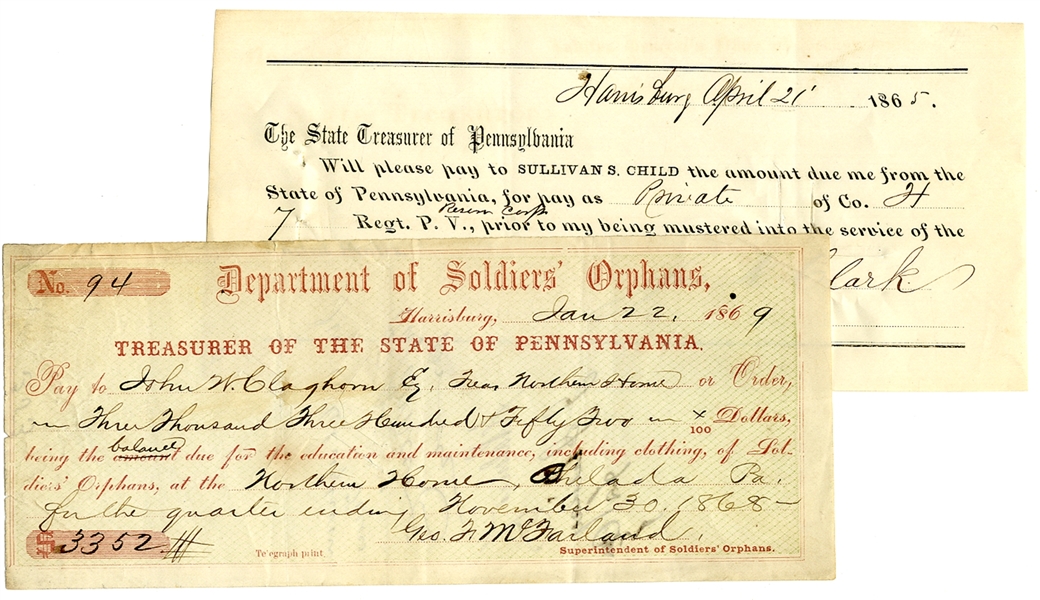 Harrisburg April 21 1865.
The State Treasurer of Pennsylvania
Will please pay to SULLIVAN S. CHILD the amount due me from the
State of Pennsylvania, for pay as Private of Co. H
7 Reserve Corps
Regt. P. V., prior to my being mustered into the service of the
Clark
No. 94
Department of Soldiers' Orphans,
Harrisburg, Jan 22, 1869
TREASURER OF THE STATE OF PENNSYLVANIA.
Pay to John W. Claghorn Eq. Treas Northern Home or Order,
Three Thousand Three Hundred & Fifty Two x/100 Dollars,
balance
being the amount due for the education and maintenance, including clothing, of Sol-
diers' Orphans, at the Northern Home, Philada Pa.
for the quarter ending November 30. 1868
$3352
Geo. F. McFarland,
Telegraph print
Superintendent of Soldiers' Orphans.